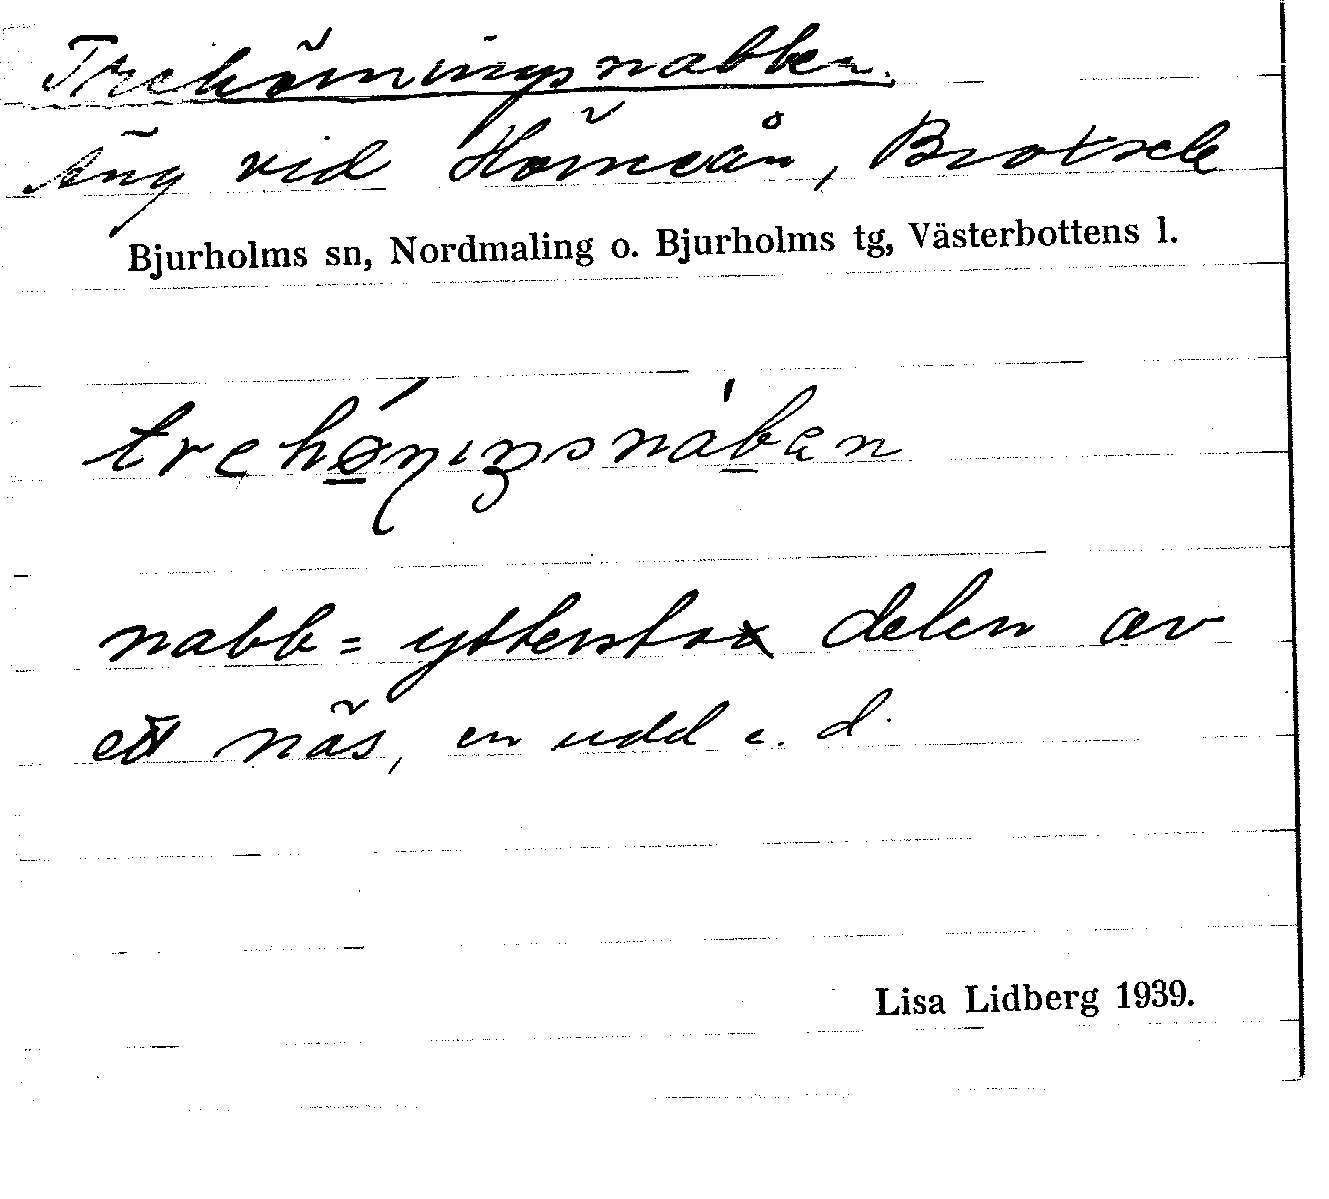 Trehörningsnabben.
Äng vid Hörneån, Brotsele
Bjurholms sn, Nordmaling o. Bjurholms tg, Västerbottens l.
nabb = yttersta delen av
ett näs, en udd e. d.
Lisa Lidberg 1939.